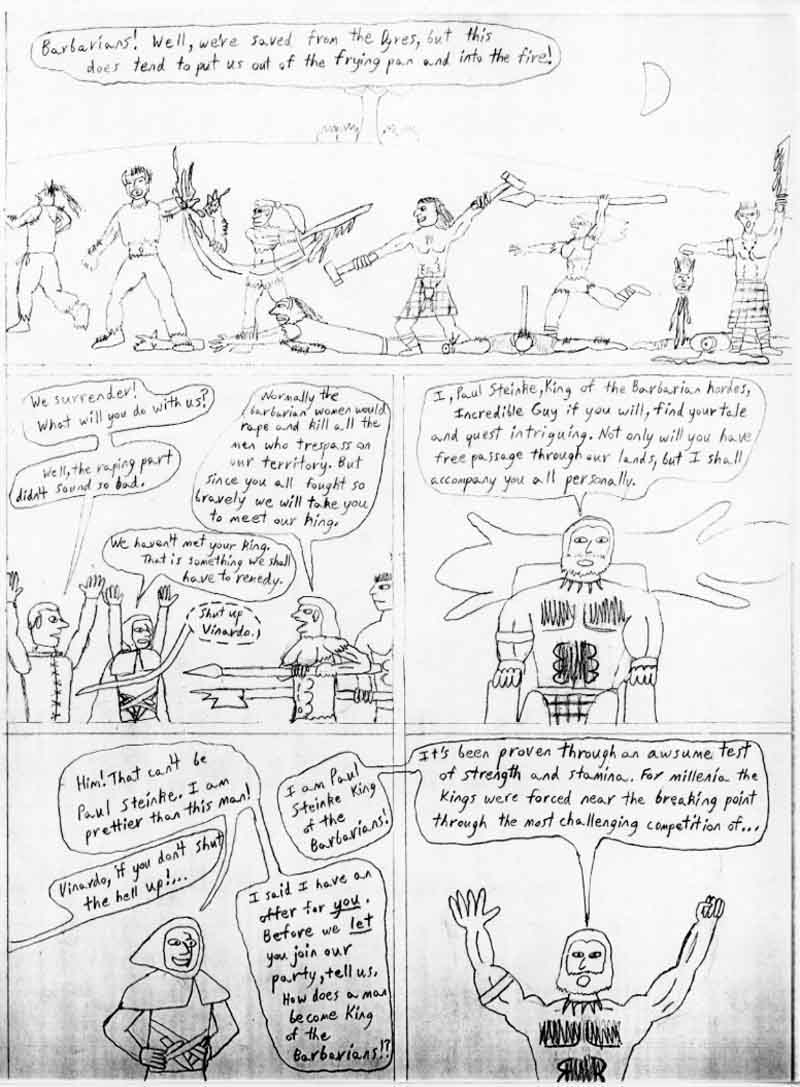 Barbarians! Well, we're saved from the Dyres, but this
does tend to put us out of the frying pan and into the fire!
We surrender!
What will you do with us?
Well, the raping part
didn't sound so bad.
Normally the
barbarian women would
rape and kill all the
men who trespass on
our territory. But
since you all fought so
bravely we will take you
to meet our king.
We haven't met your king.
That is something we shall
have to remedy.
Shut up
Vinardo.
I, Paul Steinke, King of the Barbarian hordes,
Incredible Guy if you will, find your tale
and quest intriguing. Not only will you have
free passage through our lands, but I shall
accompany you all personally.
Him! That can't be
Paul Steinke. I am
prettier than this man!
Vinardo, if you don't shut
the hell up!...
I am Paul
Steinke King
of the
Barbarians!
I said I have an
offer for you.
Before we let
you join our
party, tell us.
How does a man
become King
of the
Barbarians!?
It's been proven through an awsume test
of strength and stamina. For millenia the
Kings were forced near the breaking point
through the most challenging competition of...